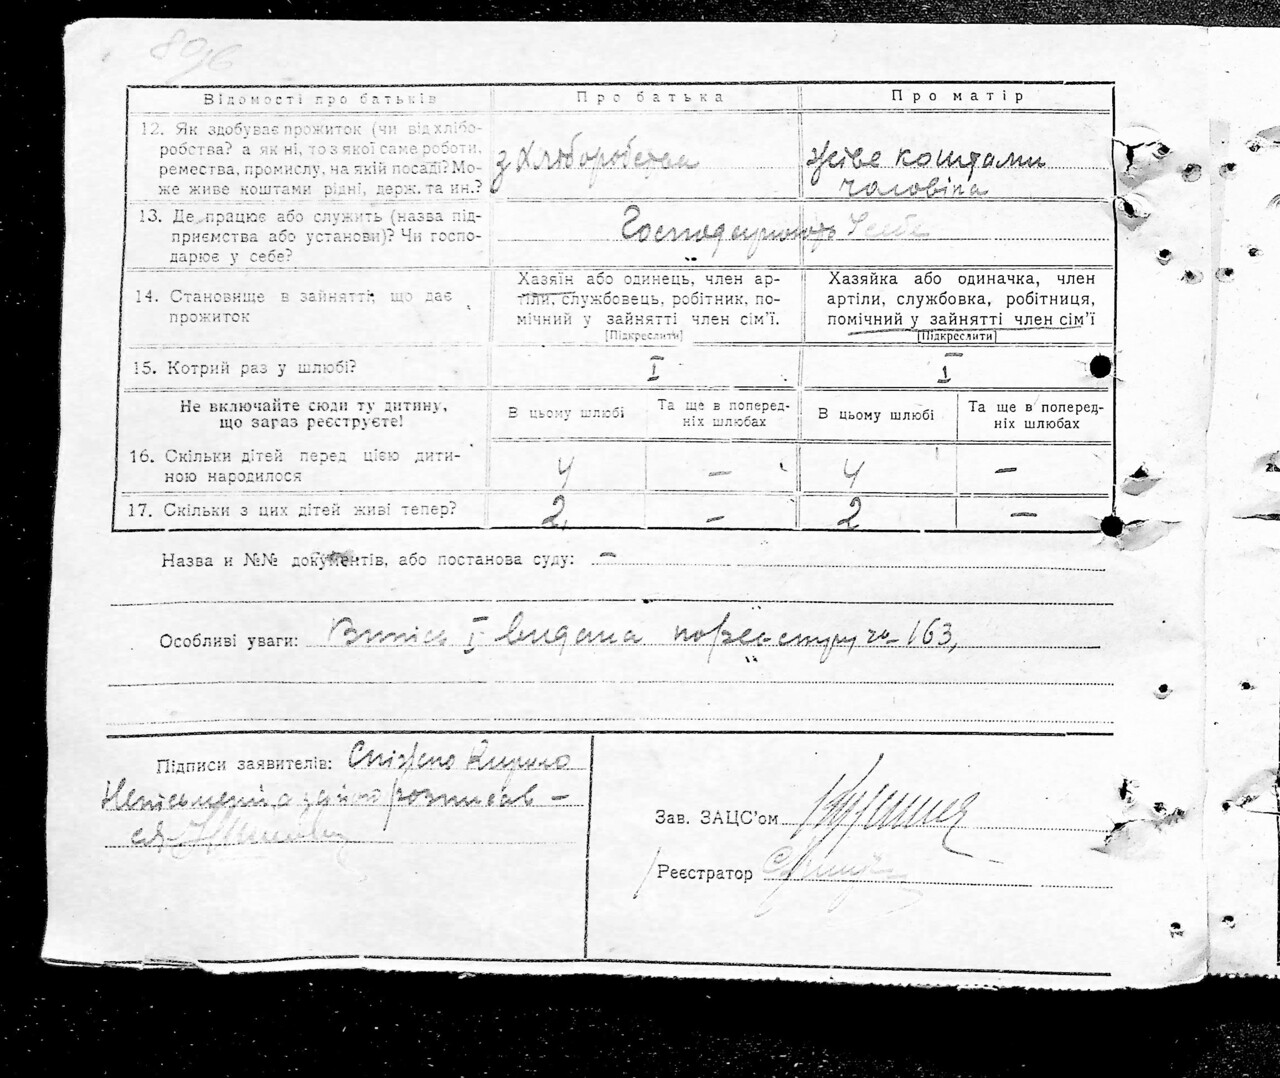 8096
Відомості про батьків
Про батька
Про матір
12. Як здобуває прожиток (чи від хлібо-
робства? а як ні, то з якої саме роботи,
ремества, промислу, на якій посаді? Мо-
же живе коштами рідні, держ. та ин.?
з Хліборобства
живе коштами
чоловіка
13. Де працює або служить (назва під-
приємства або установи)? Чи госпо-
дарює у себе?
Господарюють у себе
14. Становище в занятті, що дає
прожиток
Хазяїн або одинець, член ар-
тіли, службовець, робітник, по-
мічний у зайнятті член сім'ї.
[Підкреслити]
Хазяйка або одиначка, член
артіли, службовка, робітниця,
помічний у зайнятті член сім'ї
[Підкреслити]
15. Котрий раз у шлюбі?
I
I
Не включайте сюди ту дитину,
що зараз реєструєте!
В цьому шлюбі
Та ще в поперед-
ніх шлюбах
В цьому шлюбі
Та ще в поперед-
ніх шлюбах
16. Скільки дітей перед цією дити-
ною народилося
4
–
4
–
17. Скільки з цих дітей живі тепер?
2
–
2
–
Назва и №№ документів, або постанова суду: –
Особливі уваги: Випись I видана по реєстру № 163,
Підписи заявителів: Кирило
розписав-
ся
Зав. ЗАЦС'ом
Реєстратор